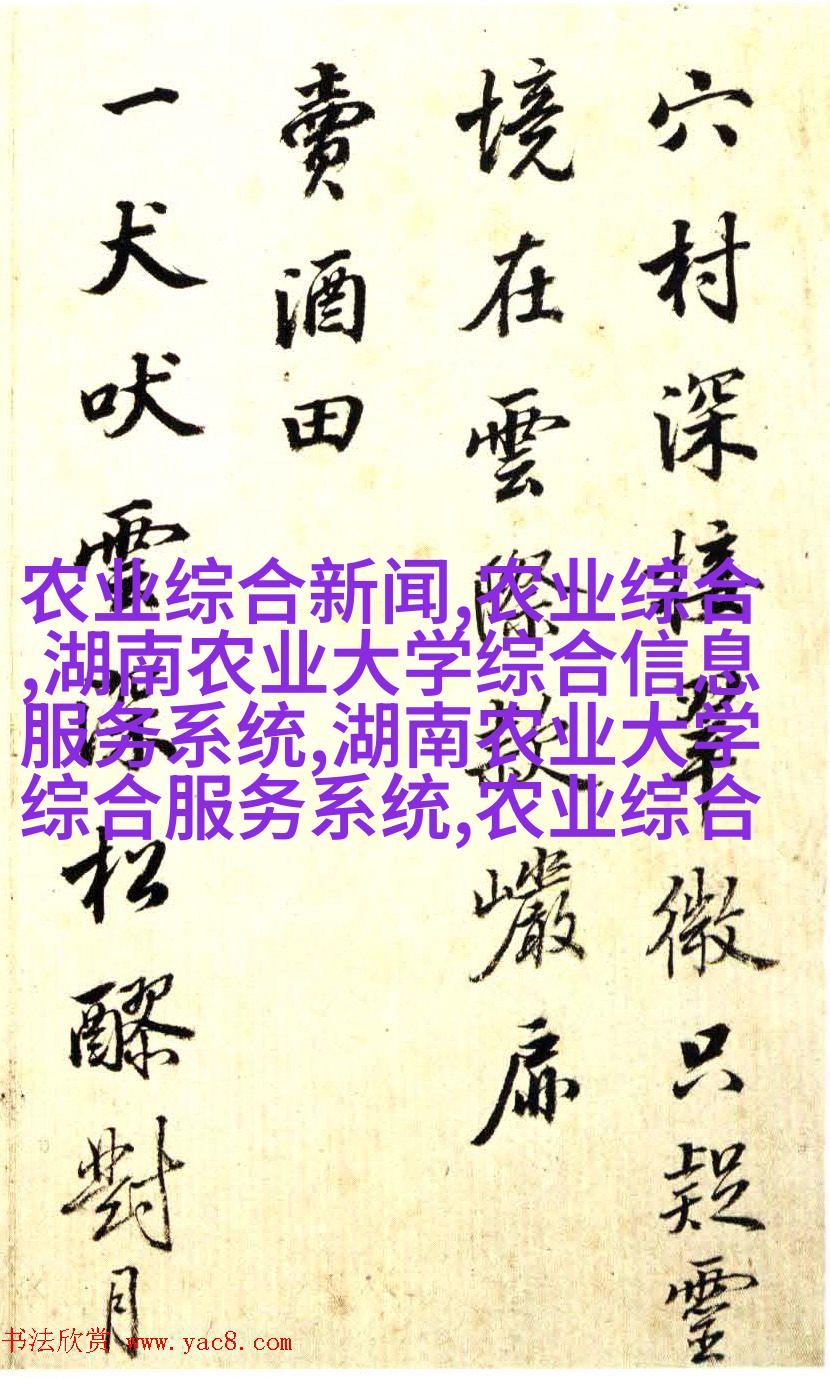 穴村深接翠微只疑靈
境在雲際款巖扉
賣酒田
一犬吠雲深松醪對月
农业综合新闻,农业综合
,湖南农业大学综合信息
服务系统,湖南农业大学
综合服务系统,农业综合
书法欣赏 www.yac8.com